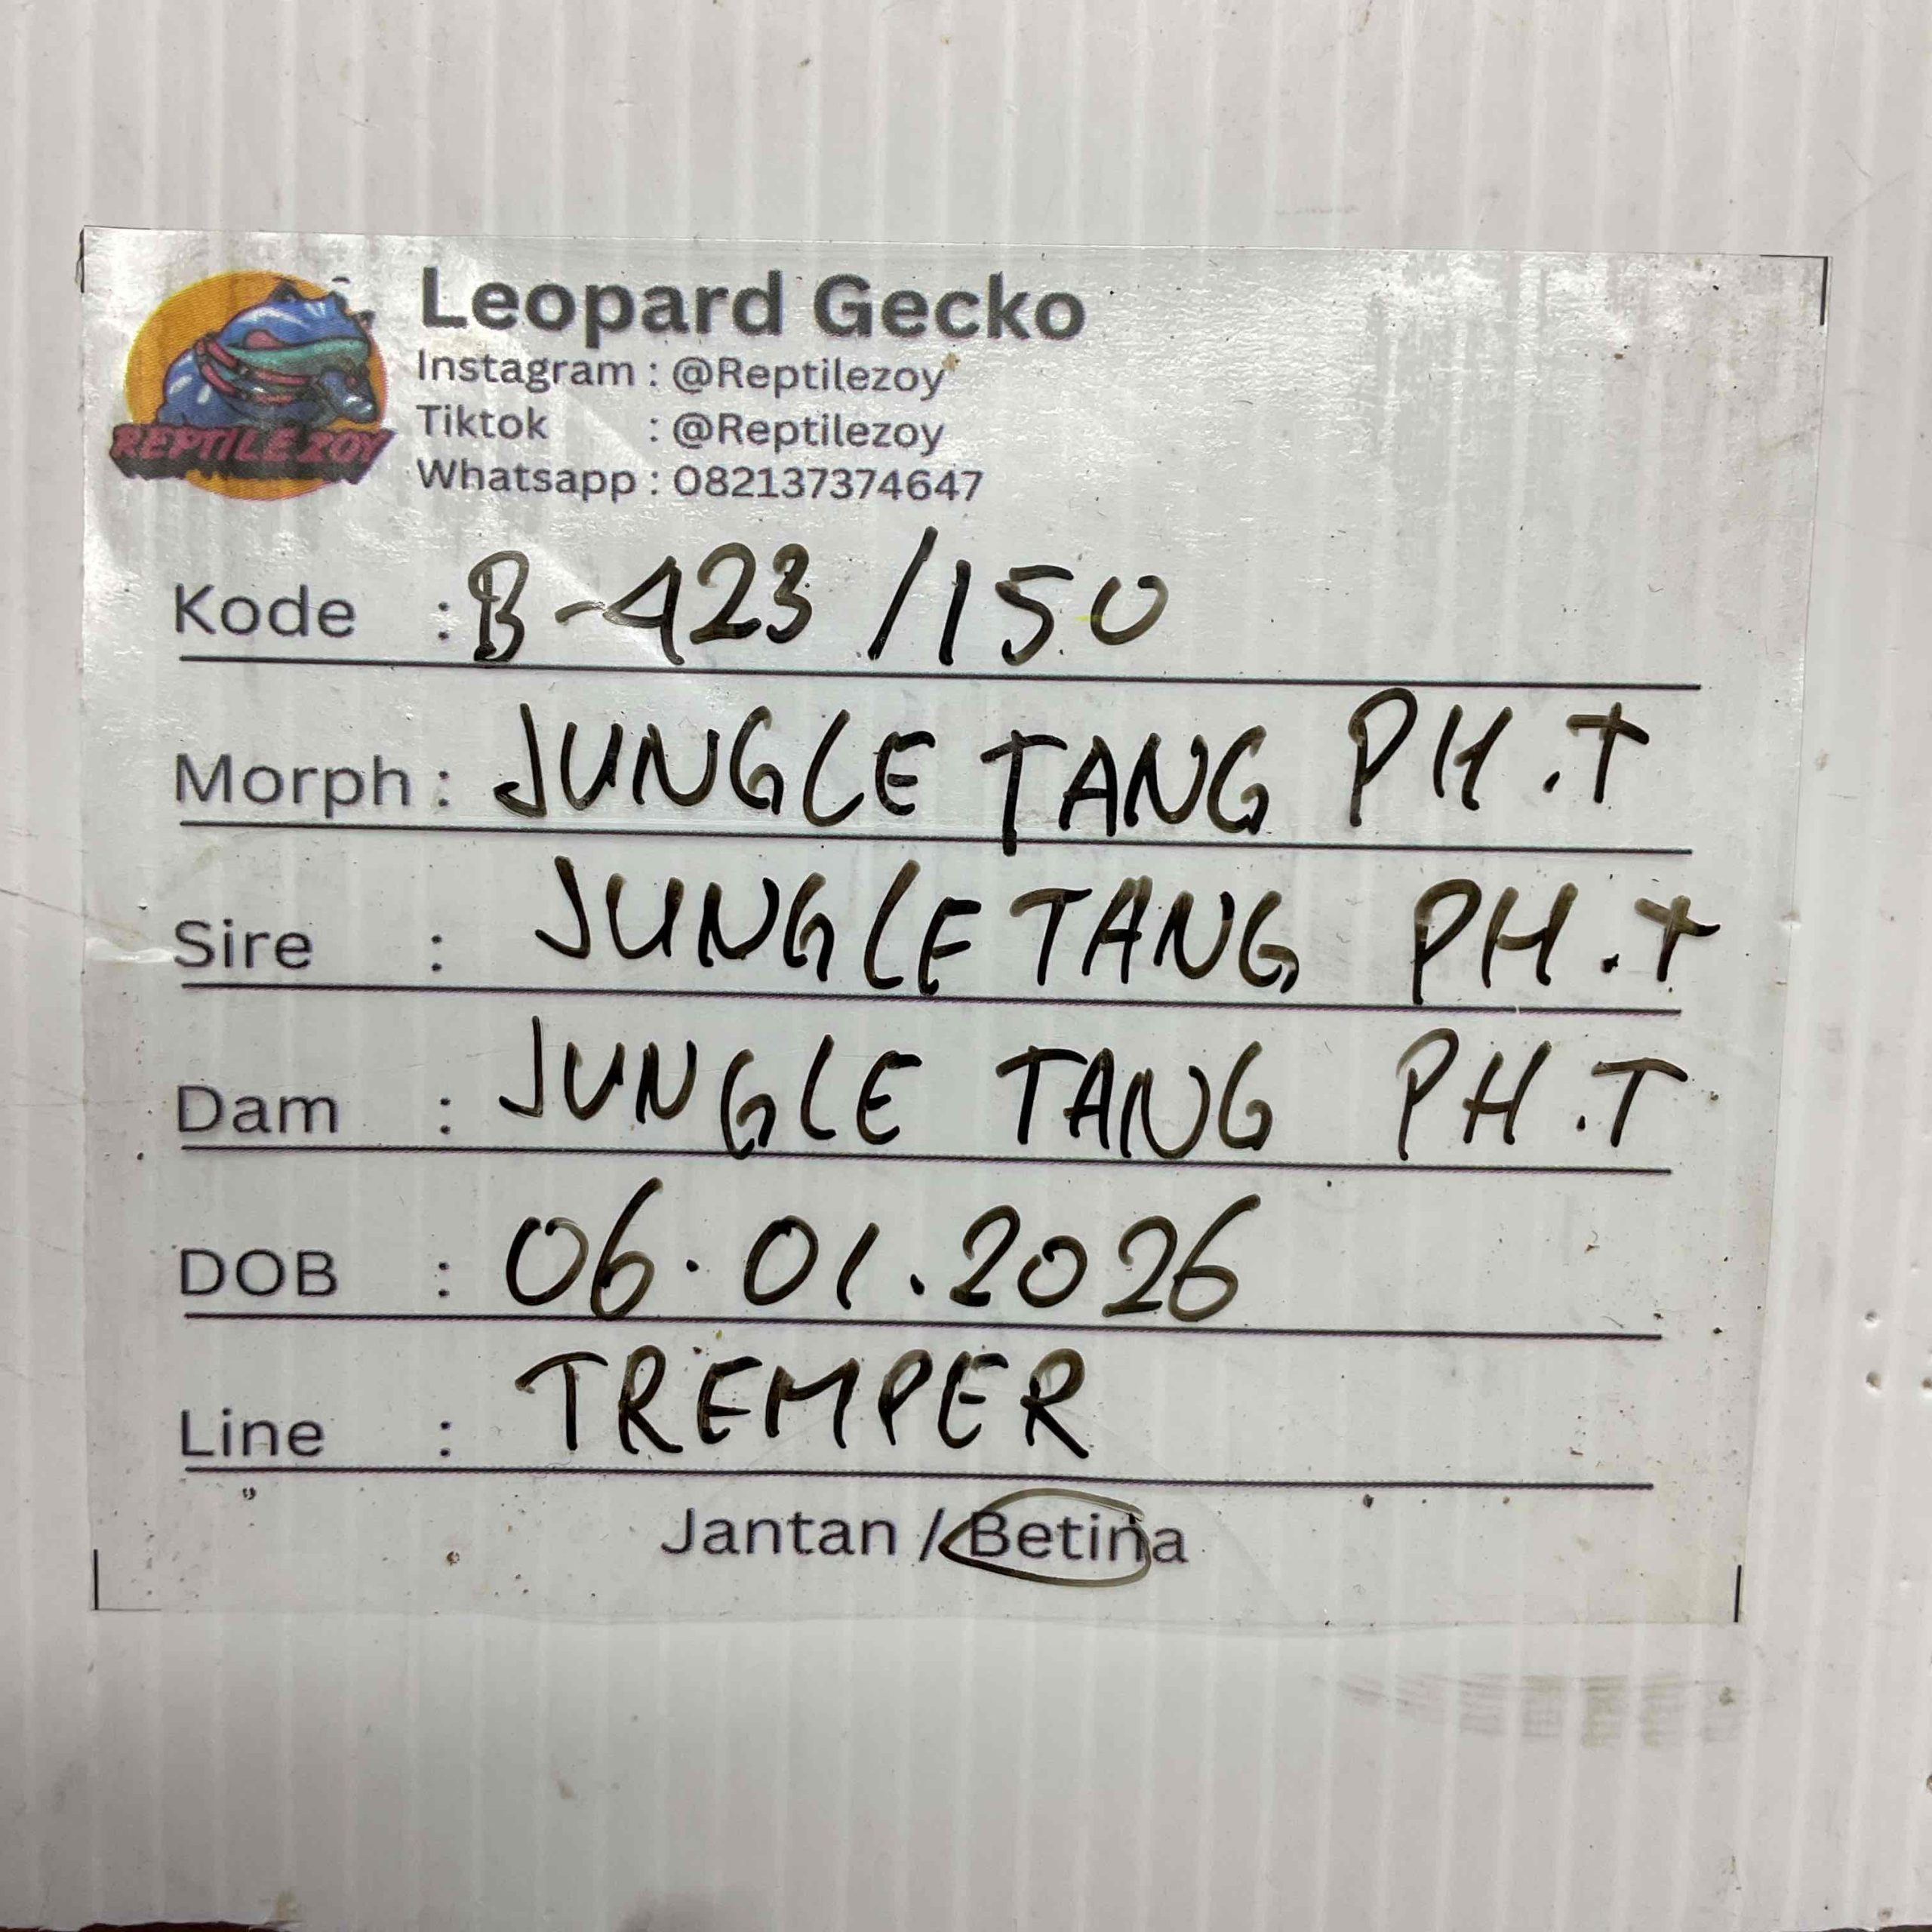 REPTILE ZOY
Leopard Gecko
Instagram : @Reptilezoy
Tiktok : @Reptilezoy
Whatsapp : 082137374647
Kode : B-423/150
Morph : JUNGLE TANG PH.T
Sire : JUNGLE TANG PH.T
Dam : JUNGLE TANG PH.T
DOB : 06.01.2026
Line : TREMPER
Jantan / Betina